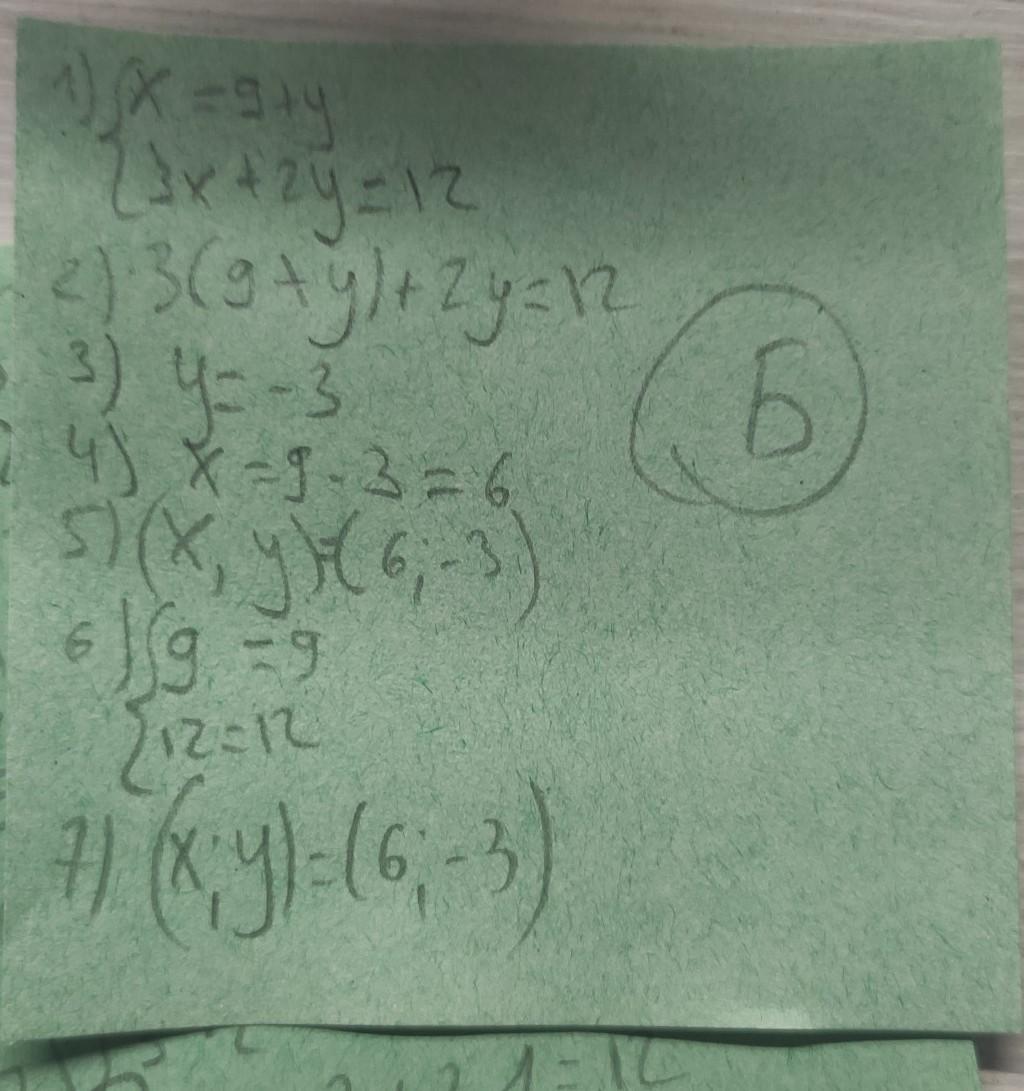 1) { x = 9+y
3x + 2y = 12
2) 3(9 + y) + 2y = 12
3) y = -3
Б
4) x = 9 - 3 = 6
5) (x, y) = (6; -3)
6) { 9 = 9
12 = 12
7) (x; y) = (6; -3)